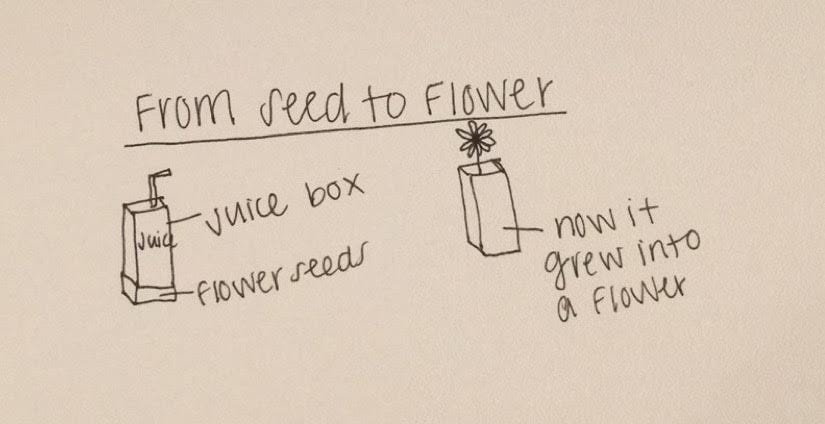 From seed to Flower
Juice
juice box
flower seeds
now it
grew into
a flower